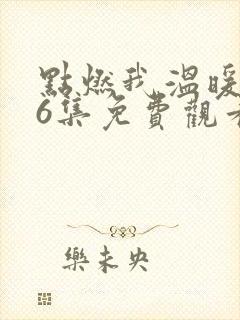 點燃我溫暖
6集免費觀
樂未央